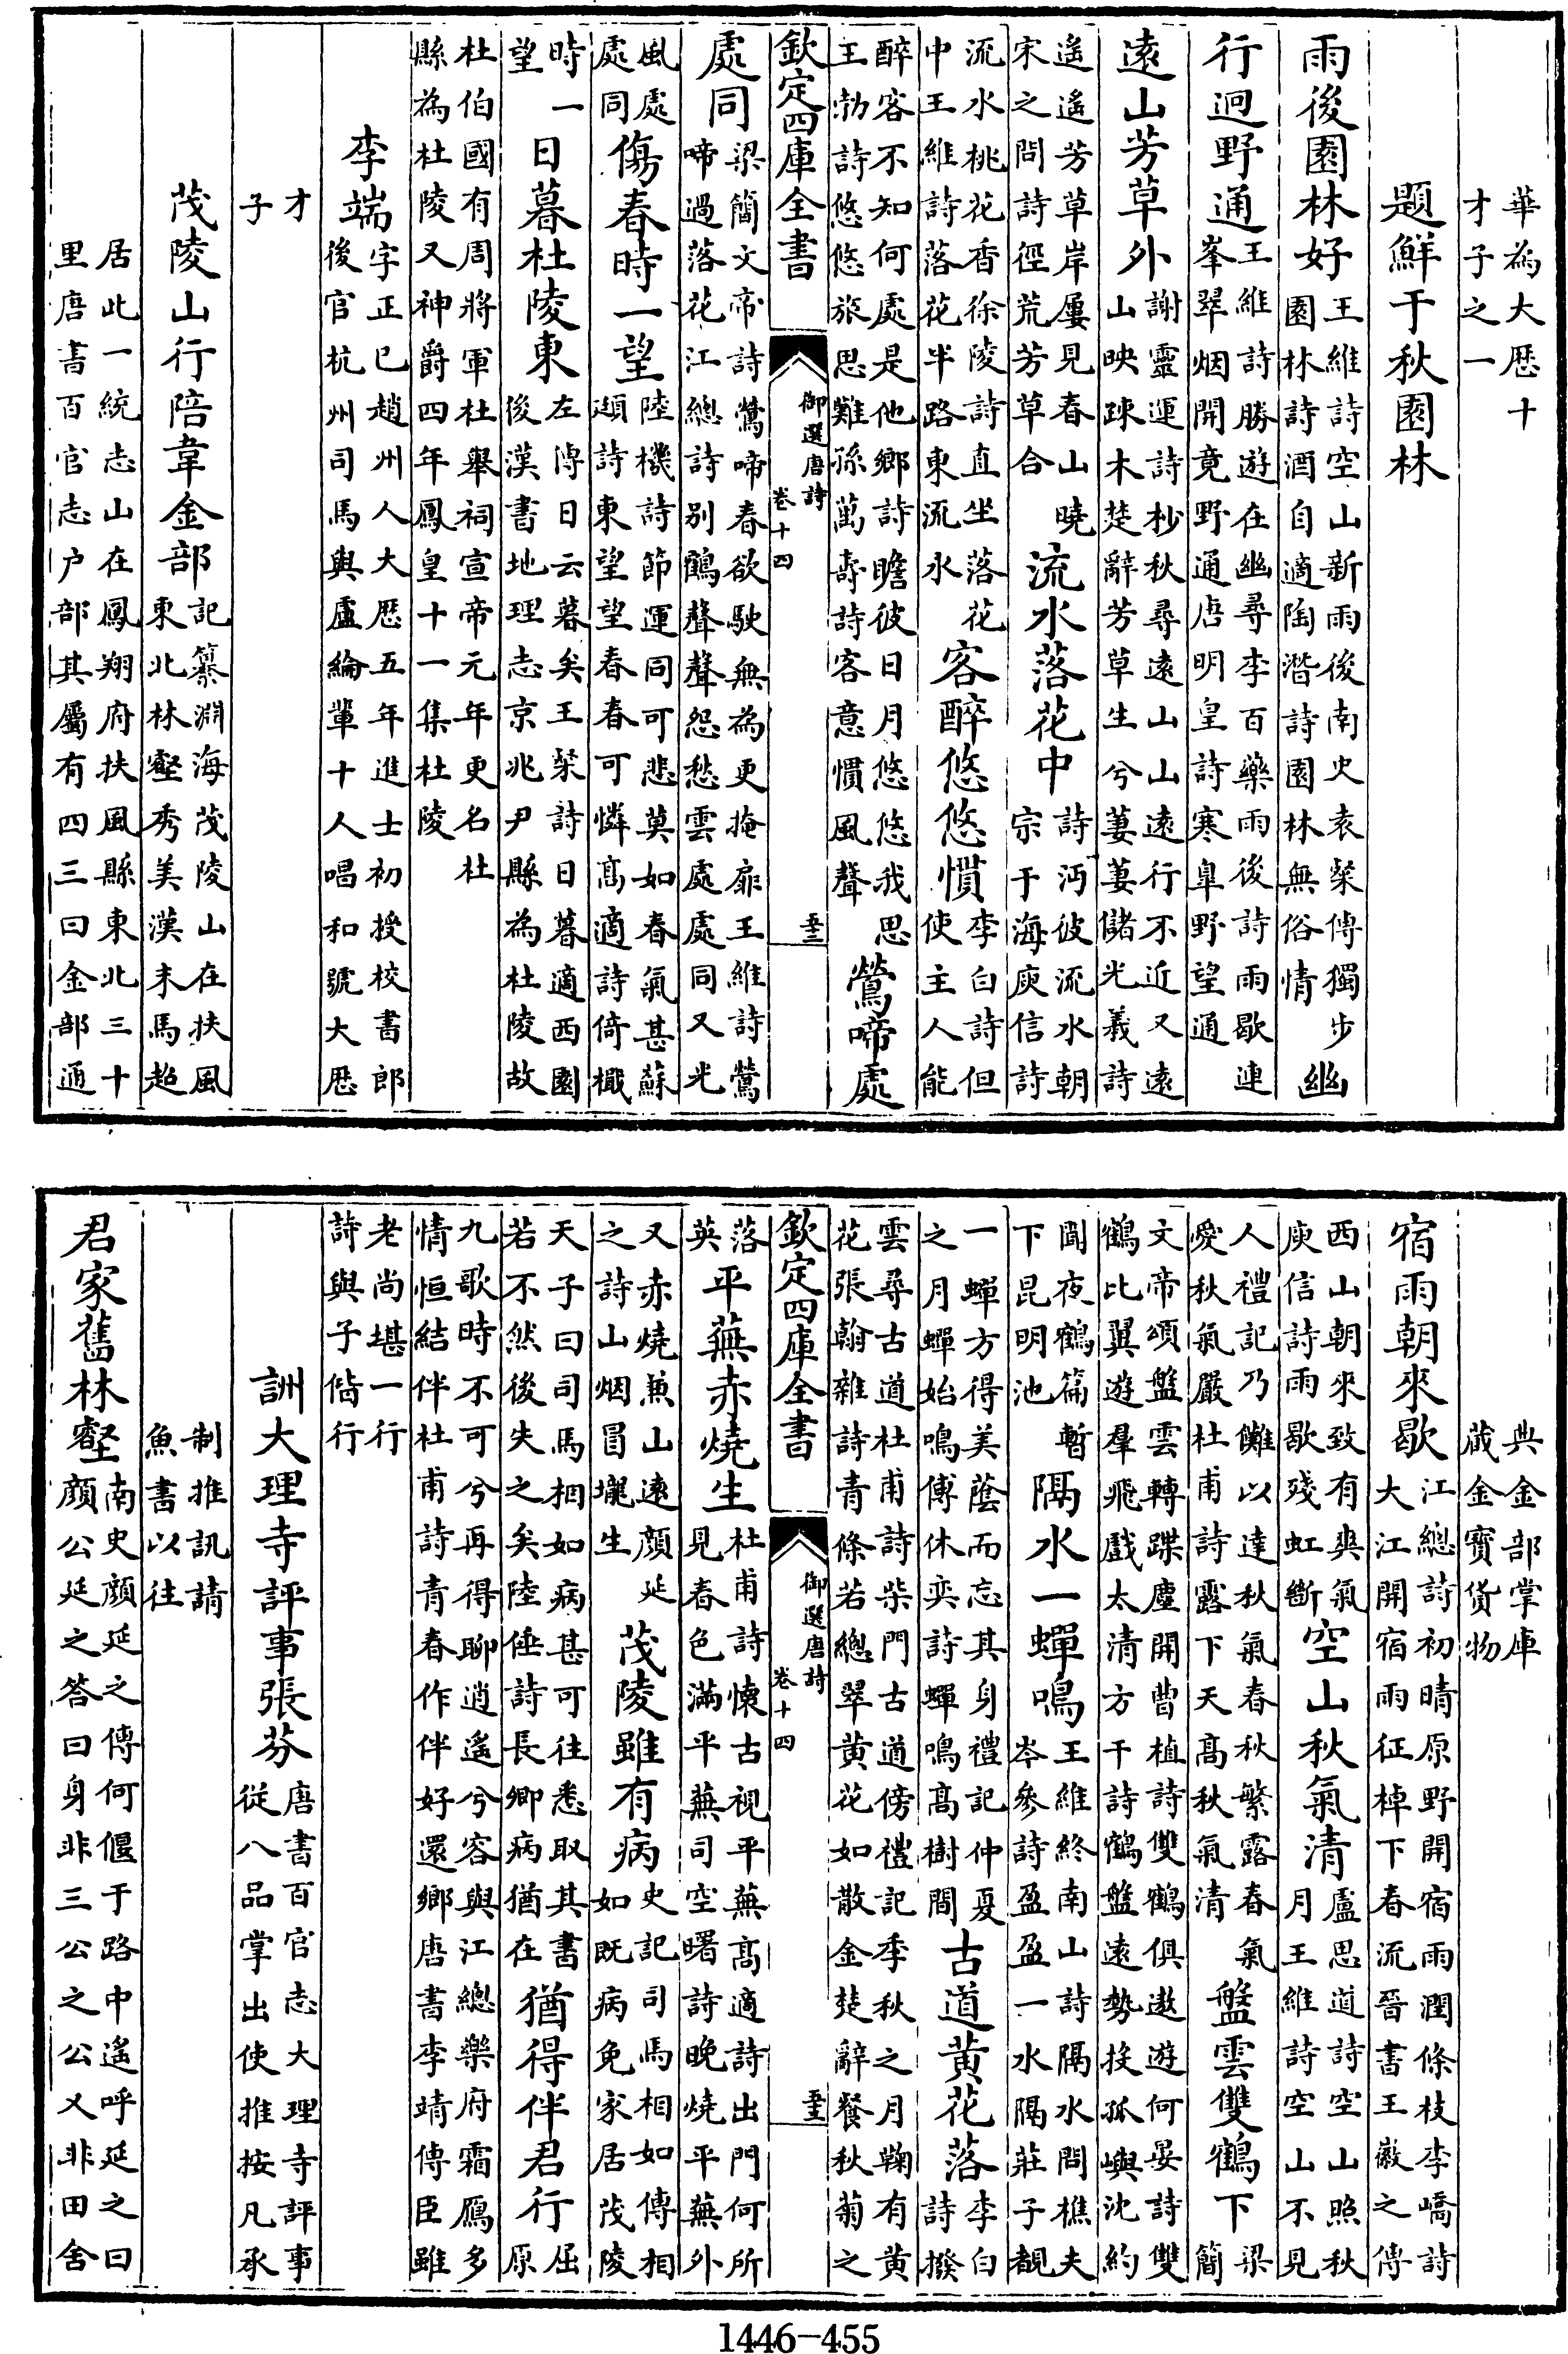 華為大厯十
才子之一
題鮮于秋園林
雨後園林好王維詩空山新雨後南史袁粲傳獨步園林詩酒自適陶潛詩園林無俗情幽
行迥野通王維詩勝遊在幽尋李百藥雨後詩雨歇連峯翠烟開竟野通唐明皇詩寒臯野望通
遠山芳草外謝靈運詩杪秋尋遠山山遠行不近又遠山映踈木楚辭芳草生兮萋萋儲光羲詩
遙遙芳草岸屢見春山曉宋之問詩徑荒芳草合流水落花中詩沔彼流水朝宗于海庾信詩
流水桃花香徐陵詩直坐落花中王維詩落花半路東流水客醉悠悠慣李白詩但使主人能
醉客不知何處是他鄉詩瞻彼日月悠悠我思王勃詩悠悠旅思難孫萬壽詩客意慣風聲鶯啼處
欽定四庫全書
御選唐詩
卷十四
處同梁簡文帝詩鶯啼春欲駛無為更掩扉王維詩鶯啼過落花江總詩別鶴聲聲怨愁雲處處同又光
風處處同傷春時一望陸機詩節運同可悲莫如春氣甚蘇頲詩東望望春春可憐高適詩倚檝
時一望日暮杜陵東左傳日云暮矣王粲詩日暮適西園後漢書地理志京兆尹縣為杜陵故
杜伯國有周將軍杜舉祠宣帝元年更名杜
縣為杜陵又神爵四年鳳皇十一集杜陵
李端字正已趙州人大厯五年進士初授校書郎後官杭州司馬與盧綸輩十人唱和號大厯
才
子
茂陵山行陪韋金部記纂淵海茂陵山在扶風東北林壑秀美漢末馬超
居此一統志山在鳳翔府扶風縣東北三十
里唐書百官志户部其屬有四三曰金部通
典金部掌庫
蔵金寶貨物
宿雨朝來歇江總詩初晴原野開宿雨潤條枝李嶠詩大江開宿雨征棹下春流晉書王徽之傳
西山朝來致有爽氣庾信詩雨歇殘虹斷空山秋氣清盧思道詩空山照秋月王維詩空山不見
人禮記乃儺以達秋氣春秋繁露春氣愛秋氣嚴杜甫詩露下天高秋氣清盤雲雙鶴下梁簡
文帝頌盤雲轉蹀塵開曹植詩雙鶴俱遨遊何晏詩雙鶴比翼遊羣飛戲太清方干詩鶴盤遠勢投孤嶼沈約
聞夜鶴篇暫下昆明池隔水一蟬鳴王維終南山詩隔水問樵夫岑參詩盈盈一水隔莊子覩
一蟬方得美蔭而忘其身禮記仲夏之月蟬始鳴傅休奕詩蟬鳴高樹間古道黃花落李白詩撥
雲尋古道杜甫詩柴門古道傍禮記季秋之月鞠有黃花張翰雜詩青條若總翠黃花如散金楚辭餐秋菊之
欽定四庫全書
御選唐詩
卷十四
落英平蕪赤燒生杜甫詩懷古視平蕪高適詩出門何所見春色滿平蕪司空曙詩晚燒平蕪外
又赤燒兼山遠顏延之詩山烟冒壠生茂陵雖有病史記司馬相如傳相如既病免家居茂陵
天子曰司馬相如病甚可往悉取其書若不然後失之矣陸倕詩長卿病猶在猶得伴君行屈原
九歌時不可兮再得聊逍遙兮容與江總樂府霜鴈多情恒結伴杜甫詩青春作伴好還鄉唐書李靖傳臣雖
老尚堪一行
詩與子偕行
詶大理寺評事張芬唐書百官志大理寺評事從八品掌出使推按凡承
制推訊請
魚書以往
君家舊林壑南史顏延之傳何偃于路中遙呼延之曰顏公延之答曰身非三公之公又非田舍
1446-455